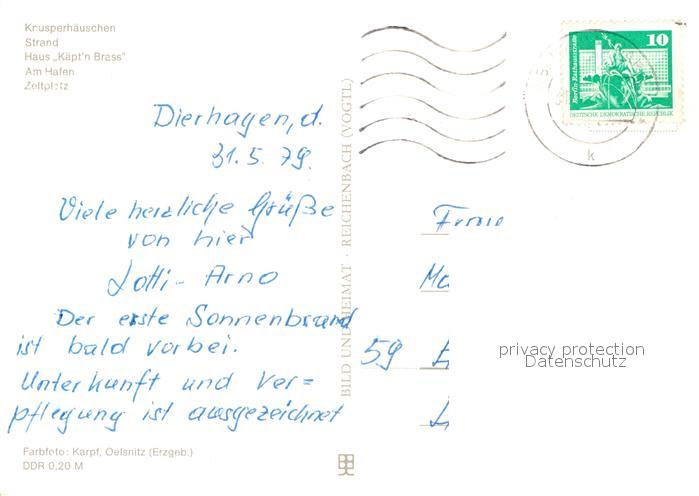 Knusperhäuschen
Strand
Haus „Käpt'n Brass"
Am Hafen
Zeltplatz
Dierhagen, d.
31.5.79.
Viele herzliche Grüße
von hier
Lotti - Arno
Der erste Sonnenbrand
ist bald vorbei.
Unterkunft und Ver=
pflegung ist ausgezeichnet
Farbfoto: Karpf, Oelsnitz (Erzgeb.)
DDR 0,20 M
BILD UND HEIMAT · REICHENBACH (VOGTL)
10
Berlin, Rathausstraße
DEUTSCHE DEMOKRATISCHE REPUBLIK
k
59
privacy protection
Datenschutz